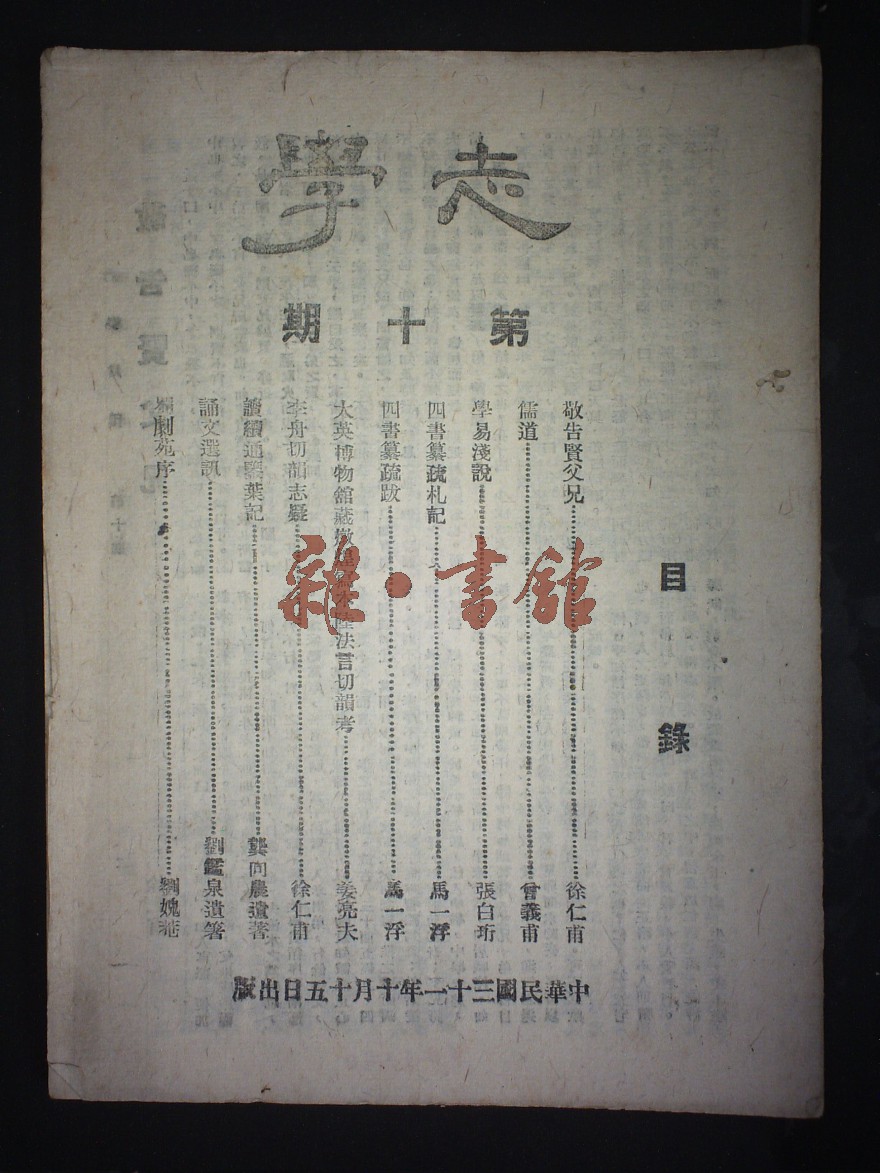 志學
第十期
目錄
敬告賢父兄 徐仁甫
儒道 曾義甫
學易淺說 張白珩
四書纂疏札記 馬一浮
四書纂疏跋 馬一浮
大英博物館藏敦煌 本陸法言切韻考 姜亮夫
李舟切韻志疑 徐仁甫
讀續通鑑葉記 龔向農遺著
誦文選訊 劉鑑泉遺箸
劇苑序
中華民國三十一年十月十五日出版
雜·書館